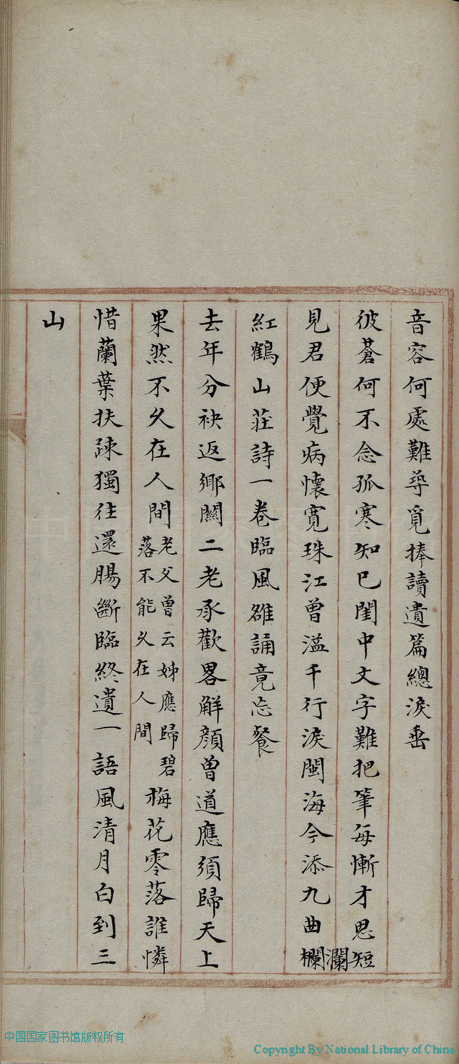 音容何處難尋覓捧讀遺篇總淚垂
彼蒼何不念孤寒知已閨中文字難把筆每慚才思短
見君便覺病懷寬珠江曾溢千行淚閩海今添九曲欄瀾
紅鶴山莊詩一卷臨風雒誦竟忘餐
去年分袂返鄉關二老承歡畧解顏曾道應須歸天上
果然不久在人間老父曾云姊應歸碧落不能久在人間梅花零落誰憐
惜蘭葉扶疎獨往還腸斷臨終遺一語風清月白到三
山
中国国家图书馆版权所有
Copyright By National Library of China